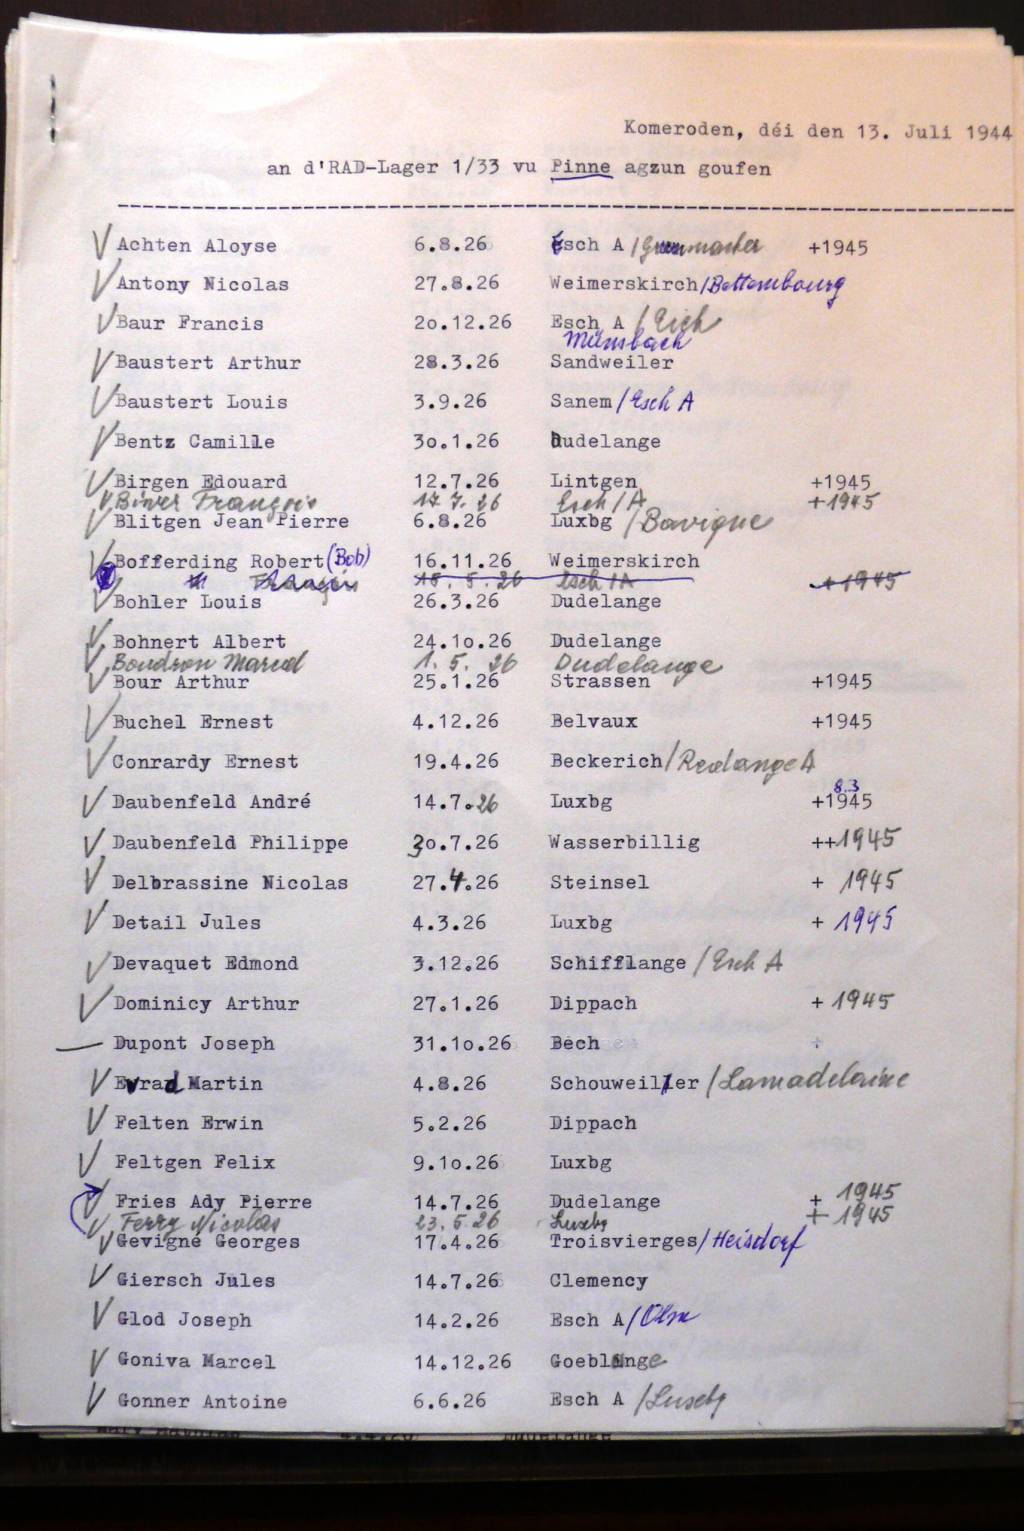 Komeroden, déi den 13. Juli 1944
an d'RAD-Lager 1/33 vu Pinne agzun goufen
Achten Aloyse 6.8.26 Esch A / +1945
Antony Nicolas 27.8.26 Weimerskirch/Bettembourg
Baur Francis 20.12.26 Esch A / Eich
Münsbach
Baustert Arthur 28.3.26 Sandweiler
Baustert Louis 3.9.26 Sanem/Esch A
Bentz Camille 30.1.26 Dudelange
Birgen Edouard 12.7.26 Lintgen +1945
Biwer François 17.7.26 Esch/A +1945
Blitgen Jean Pierre 6.8.26 Luxbg /Bavigne
Bofferding Robert (Bob) 16.11.26 Weimerskirch
5.26 Esch/A +1945
Bohler Louis 26.3.26 Dudelange
Bohnert Albert 24.10.26 Dudelange
Boudron Marcel 1.5.26 Dudelange
Bour Arthur 25.1.26 Strassen +1945
Buchel Ernest 4.12.26 Belvaux +1945
Conrardy Ernest 19.4.26 Beckerich/Redange A
8.3
Daubenfeld André 14.7.26 Luxbg +1945
Daubenfeld Philippe 30.7.26 Wasserbillig ++1945
Delbrassine Nicolas 27.4.26 Steinsel + 1945
Detail Jules 4.3.26 Luxbg + 1945
Devaquet Edmond 3.12.26 Schifflange /Esch A
Dominicy Arthur 27.1.26 Dippach + 1945
Dupont Joseph 31.10.26 Bech +
Evrad Martin 4.8.26 Schouweiler /Lamadelaine
Felten Erwin 5.2.26 Dippach
Feltgen Felix 9.10.26 Luxbg
Fries Ady Pierre 14.7.26 Dudelange + 1945
Ferry Nicolas 23.5.26 Luxbg + 1945
Gevigné Georges 17.4.26 Troisvierges/Heisdorf
Giersch Jules 14.7.26 Clemency
Glod Joseph 14.2.26 Esch A/Olm
Goniva Marcel 14.12.26 Goeblange
Gonner Antoine 6.6.26 Esch A /Luxbg